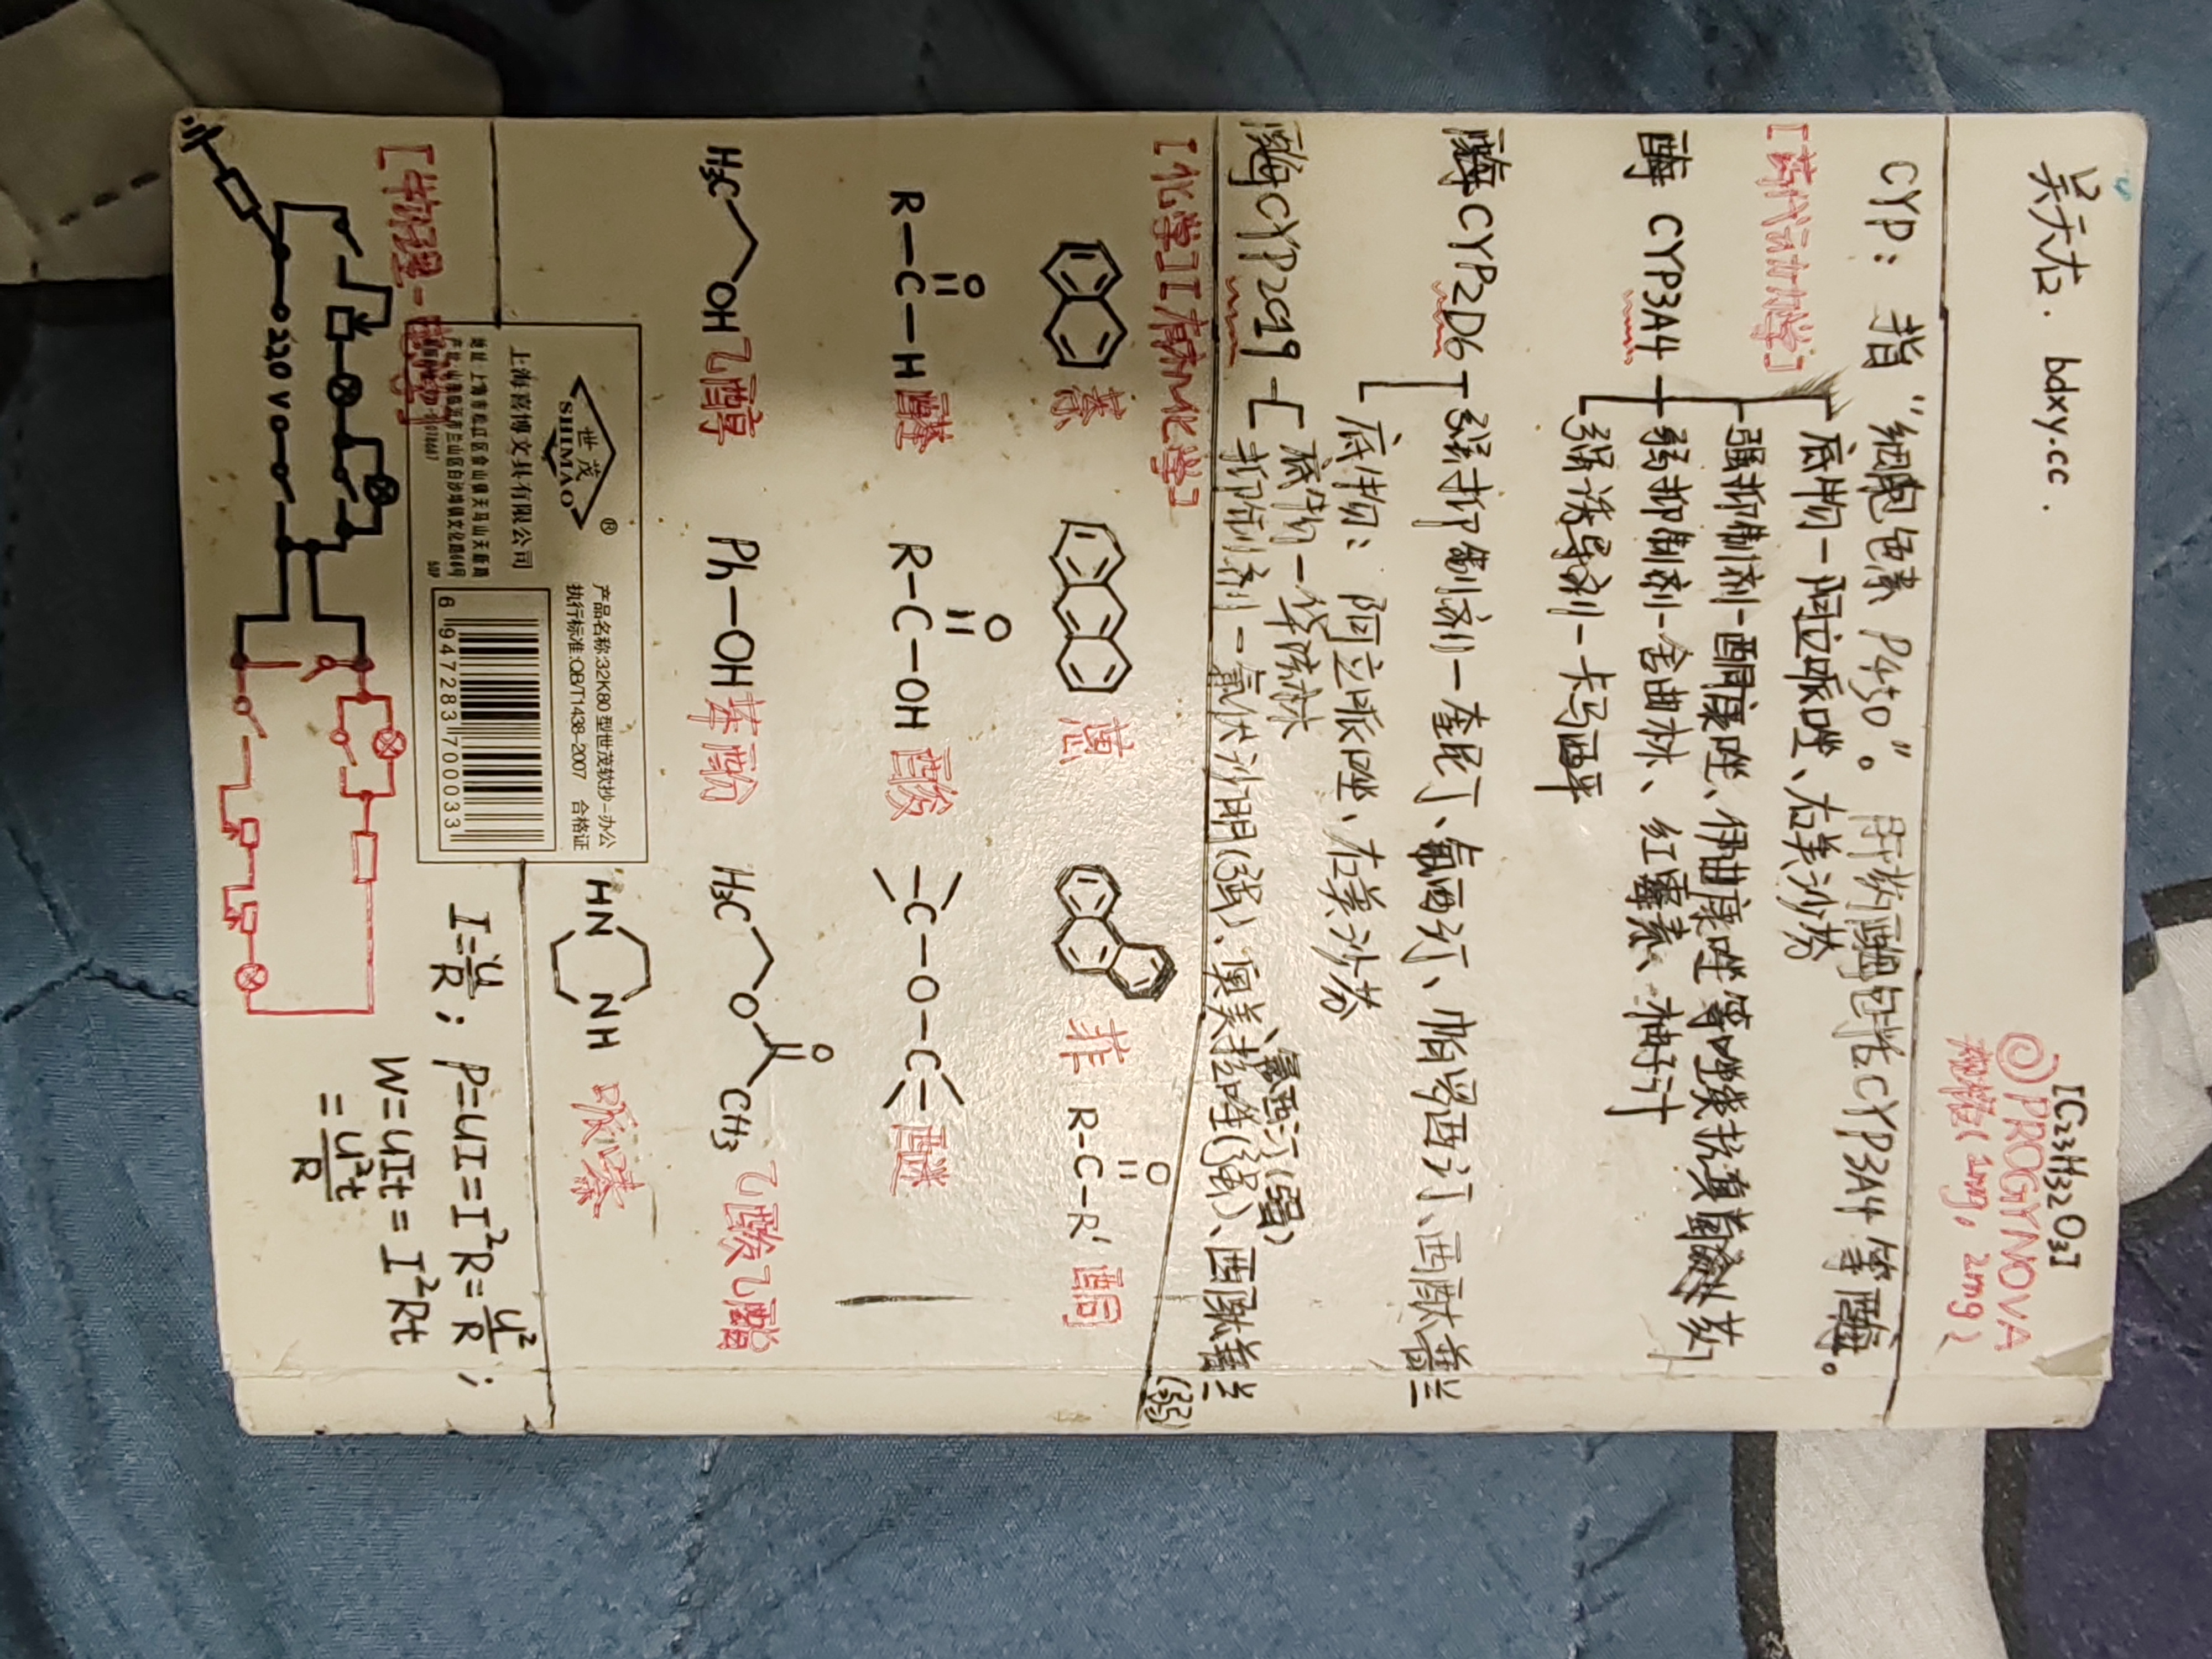 吴大右. bdxy.cc.
[C₂₃H₃₂O₃]
@PROGYNOVA
(1mg, 2mg)
CYP: 指“细胞色素 P450”。肝药酶包括CYP3A4等酶。
[药代动力学]
底物-阿立哌唑、右美沙芬
强抑制剂-酮康唑、伊曲康唑等唑类抗真菌药
酶 CYP3A4
弱抑制剂-舍曲林、红霉素、柚子汁
强诱导剂-卡马西平
酶CYP2D6
强抑制剂-奎尼丁、氟西汀、帕罗西汀、西酞普兰
底物: 阿立哌唑、右美沙芬
酶CYP2C9
底物-华法林
氟西汀(弱)
抑制剂-氟伏沙明(强)、奥美拉唑(强)、西酞普兰(弱)
[化学I有机化学]
萘 蒽 菲 R-C-R' 酮
O
R-C-H 醛 R-C-OH 酸 C-O-C 醚
O O
H₃C OH 乙醇 Ph-OH 苯酚 H₃C O O CH₃ 乙酸乙酯
HN NH 哌嗪
世茂
SHIMAO
®
上海 博文具有限公司
产品名称:32K80 型世茂软抄-办公
执行标准:QB/T1438-2007 合格证
6 947283 700033
220V
I=U/R; P=UI=I²R=U²/R;
W=UIt=I²Rt
=U²t/R